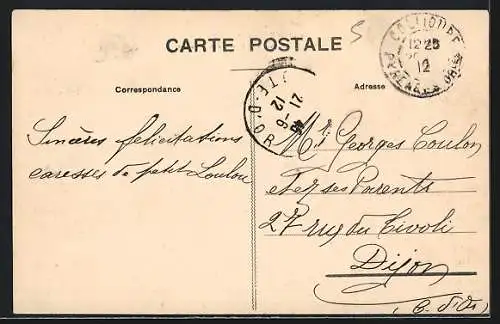 5
CARTE POSTALE
COLLIOURE
12 25
12
PYRÉNÉES ORles
Correspondance
Adresse
CÔTE-D'OR
21-6
12
Sincères félicitations
caresses de petit Loulou
Mr Georges Coulon
chez ses Parents
27 rue du Tivoli
Dijon
(C. d'Or)